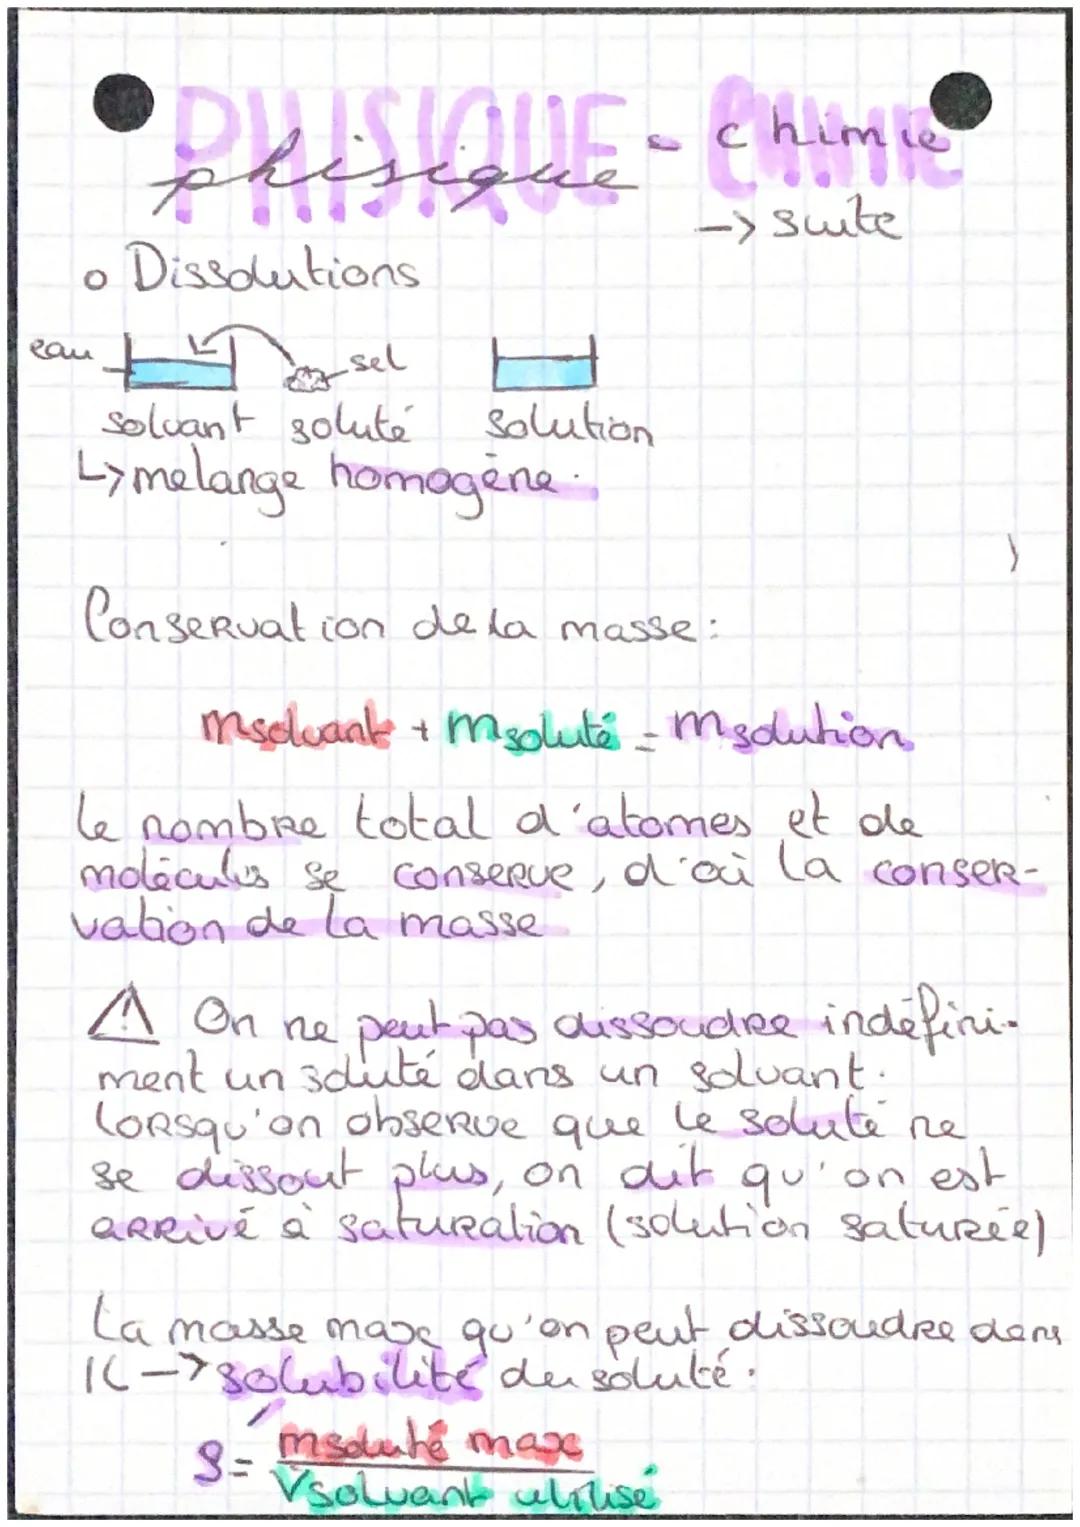 PHISIQUE - CHIMIE
phisique - chimie
-> suite
o Dissolutions
eau sel
solvant soluté solution
↳ melange homogène.
Conservation de la masse:
msolvant + msoluté = msolution
le nombre total d'atomes et de
molécules se conserve, d'où la conser-
vation de la masse
⚠ On ne peut pas dissoudre indéfini-
ment un soluté dans un solvant.
lorsqu'on observe que le soluté ne
se dissout plus, on dit qu'on est
arrivé à saturation (solution saturée)
La masse max qu'on peut dissoudre dans
1L -> solubilité du soluté.
S = msoluté max
Vsolvant utilisé